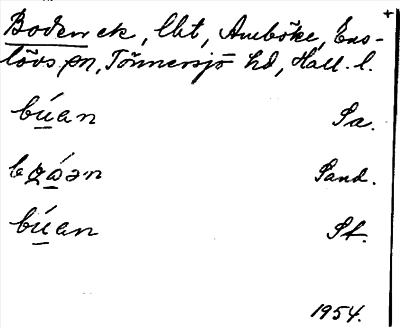 Boden ek, lht, Amböke, Ens-
lövs sn, Tönnersjö hd, Hall. l.
bú̲an Sa.
Sand.
bú̲an St.
1954.